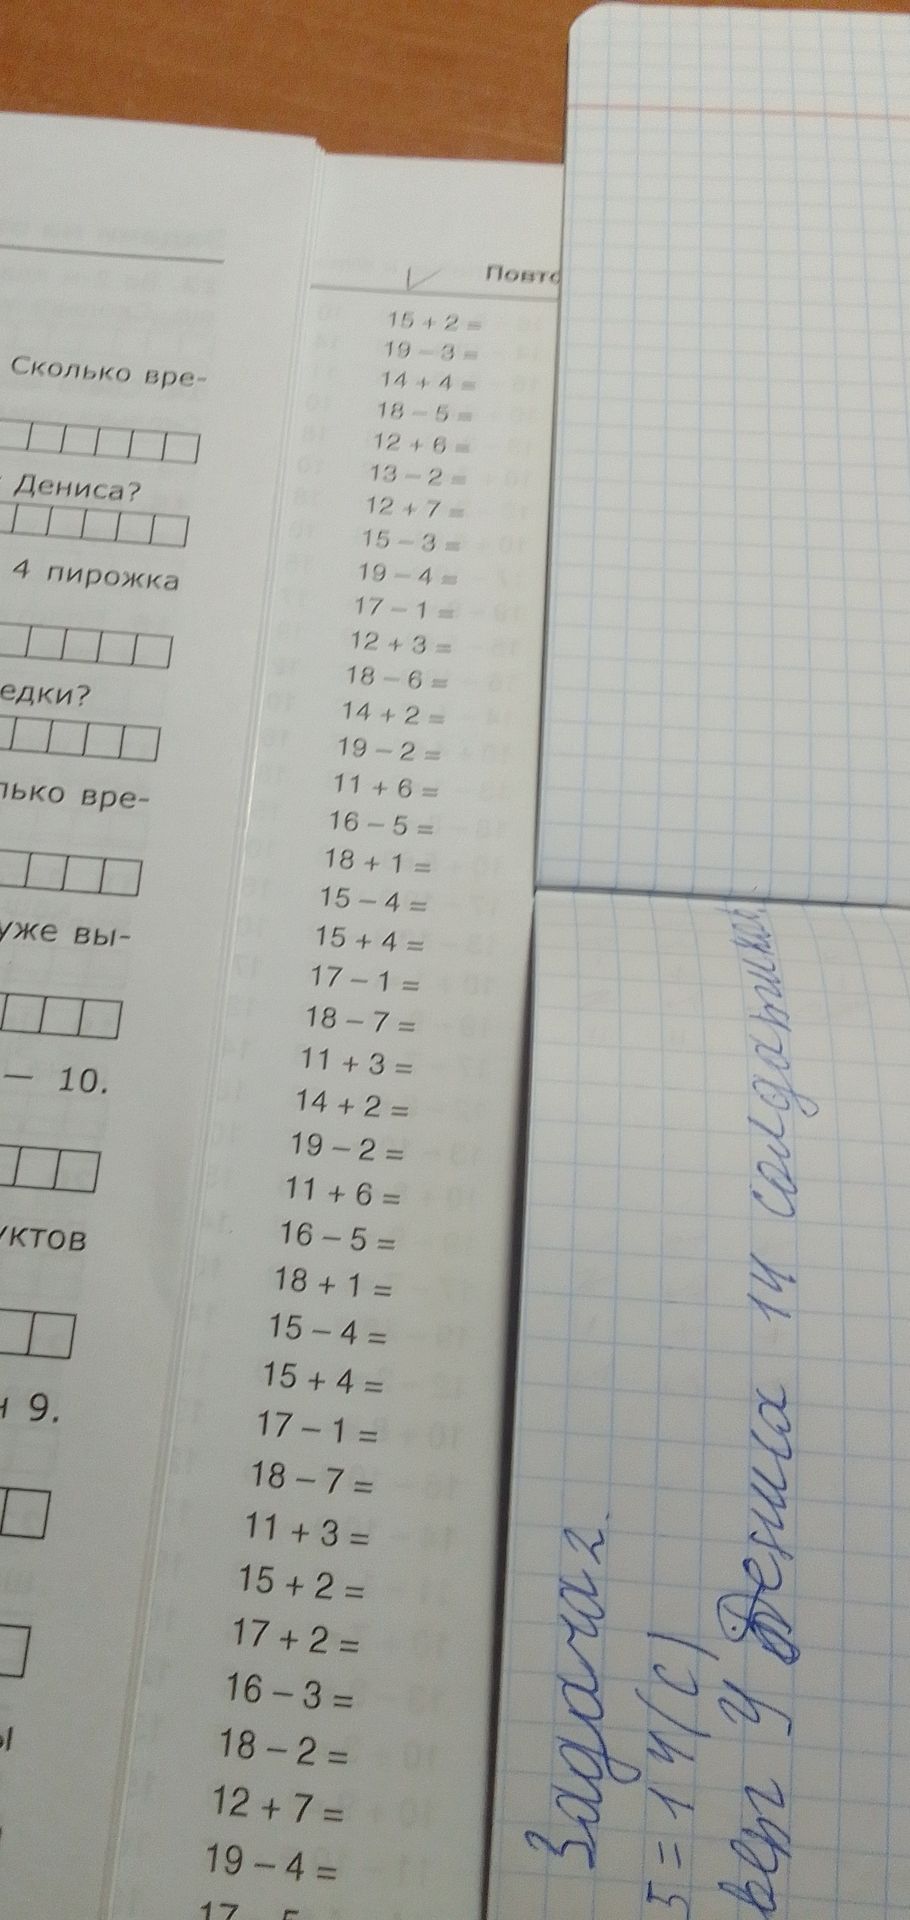 Сколько вре-
Дениса?
4 пирожка
едки?
лько вре-
уже вы-
— 10.
уктов
9.
Повто
15 + 2 =
19 – 3 =
14 + 4 =
18 – 5 =
12 + 6 =
13 – 2 =
12 + 7 =
15 – 3 =
19 – 4 =
17 – 1 =
12 + 3 =
18 – 6 =
14 + 2 =
19 – 2 =
11 + 6 =
16 – 5 =
18 + 1 =
15 – 4 =
15 + 4 =
17 – 1 =
18 – 7 =
11 + 3 =
14 + 2 =
19 – 2 =
11 + 6 =
16 – 5 =
18 + 1 =
15 – 4 =
15 + 4 =
17 – 1 =
18 – 7 =
11 + 3 =
15 + 2 =
17 + 2 =
16 – 3 =
18 – 2 =
12 + 7 =
19 – 4 =
17 – 5
Задача 2.
5 = 14 (с)
вет У Дениса 14 солдатиков.